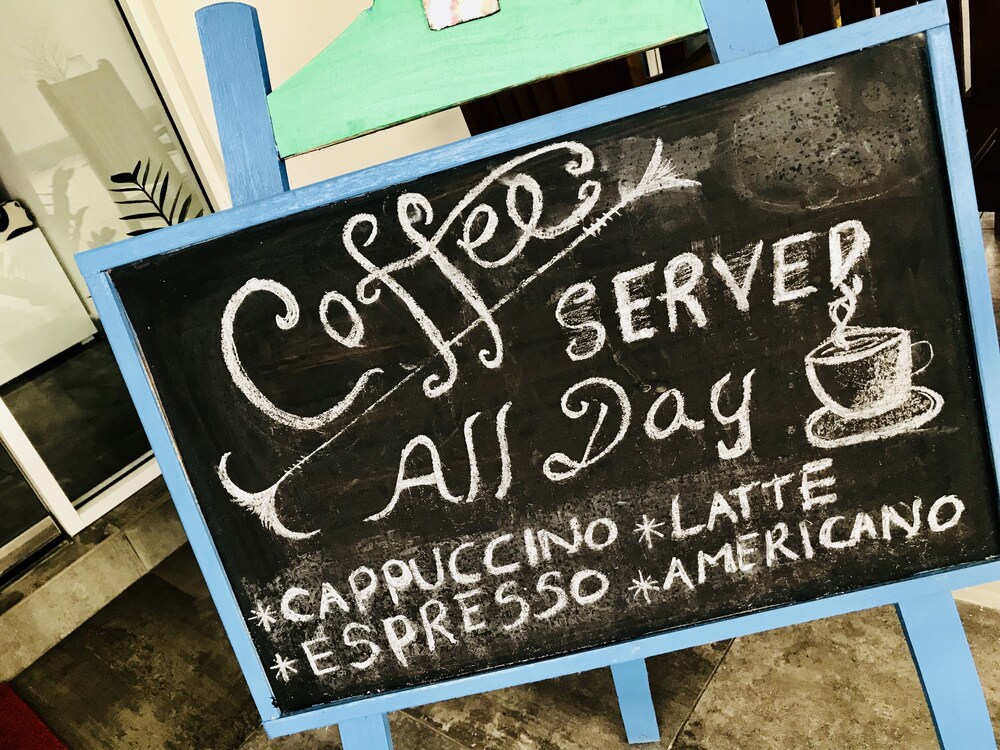 Coffee SERVED
All Day
*CAPPUCCINO *LATTE
*ESPRESSO *AMERICANO